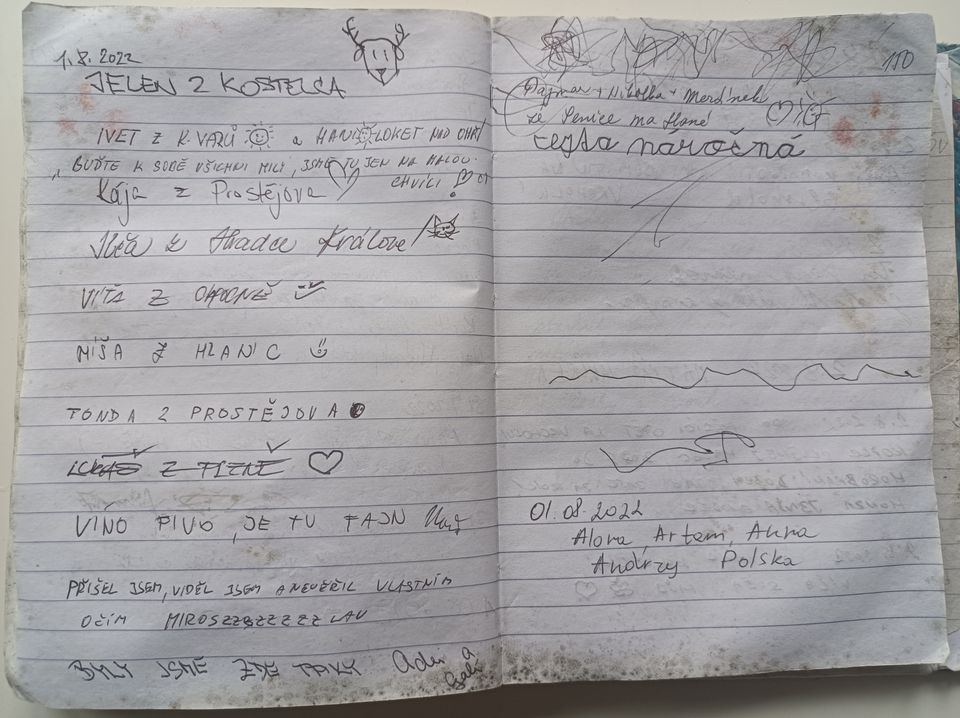 1.8.2022
JELEN Z KOSTELCA
IVET Z K.VARŮ a HANI LOKET NAD OHŘÍ
„BUĎTE K SOBĚ VŠICHNI MILÍ, JSME TU JEN NA MALOU
CHVÍLI
Kája z Prostějova
z Hradce Králové
VÍŤA Z
MÍŠA Z HLANIC
TONDA Z PROSTĚJOVA
LUKÁŠ Z PLZNĚ
VÍNO PIVO, JE TU FAJN
PŘIŠEL JSEM, VIDĚL JSEM A NEVĚŘIL VLASTNÍM
OČÍM MIROSZZZZZZZZLAV
BYLY JSME ZDE TAKY a
110
Dagmar + Nikolka + Merlínek
ze Senice na Hané
cesta náročná
01.08.2022
Alona, Artem, Anna
Andrzy Polska